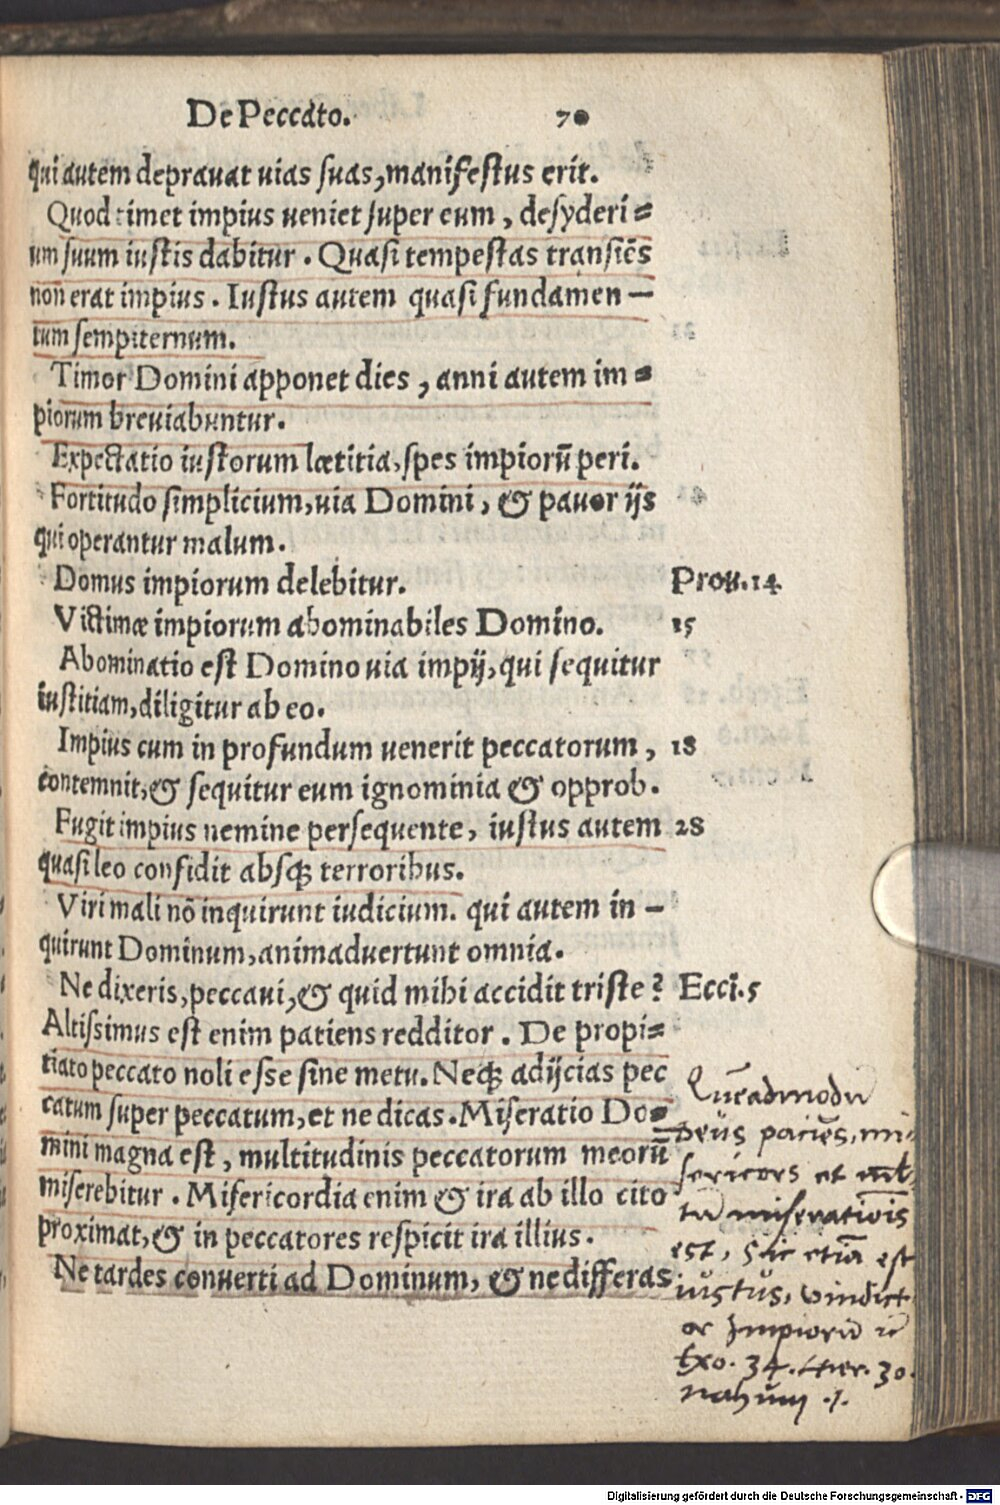 De Peccato. 70
qui autem depravat uias suas, manifestus erit.
Quod timet impius ueniet super eum, desyderi=
um suum iustis dabitur. Quasi tempestas transiẽs
non erat impius. Iustus autem quasi fundamen-
tum sempiternum.
Timor Domini apponet dies, anni autem im=
piorum breviabuntur.
Expectatio iustorum lætitia, spes impiorũ peri.
Fortitudo simplicium, uia Domini, & pavor ijs
qui operantur malum.
Domus impiorum delebitur. Prov.14
Victimæ impiorum abominabiles Domino. 15
Abominatio est Domino uia impij, qui sequitur
iustitiam, diligitur ab eo.
Impius cum in profundum uenerit peccatorum, 18
contemnit, & sequitur eum ignominia & opprob.
Fugit impius nemine persequente, iustus autem 28
quasi leo confidit absq; terroribus.
Viri mali nõ inquirunt iudicium. qui autem in-
quirunt Dominum, animadvertunt omnia.
Ne dixeris, peccavi, & quid mihi accidit triste? Eccl.5
Altissimus est enim patiens redditor. De propi=
tiato peccato noli esse sine metu. Neq; adijcias pec
catum super peccatum, et ne dicas. Miseratio Do=
mini magna est, multitudinis peccatorum meorũ
miserebitur. Misericordia enim & ira ab illo cito
proximat, & in peccatores respicit ira illius.
Ne tardes converti ad Dominum, & ne differas
Quẽadmodũ
Deus paciẽs, mi
sericors et mul
tũ miserationis
est, sic etiã est
iustus, vindict
or Impiorũ
Exo. 34. Hier. 30.
Nahum .1.